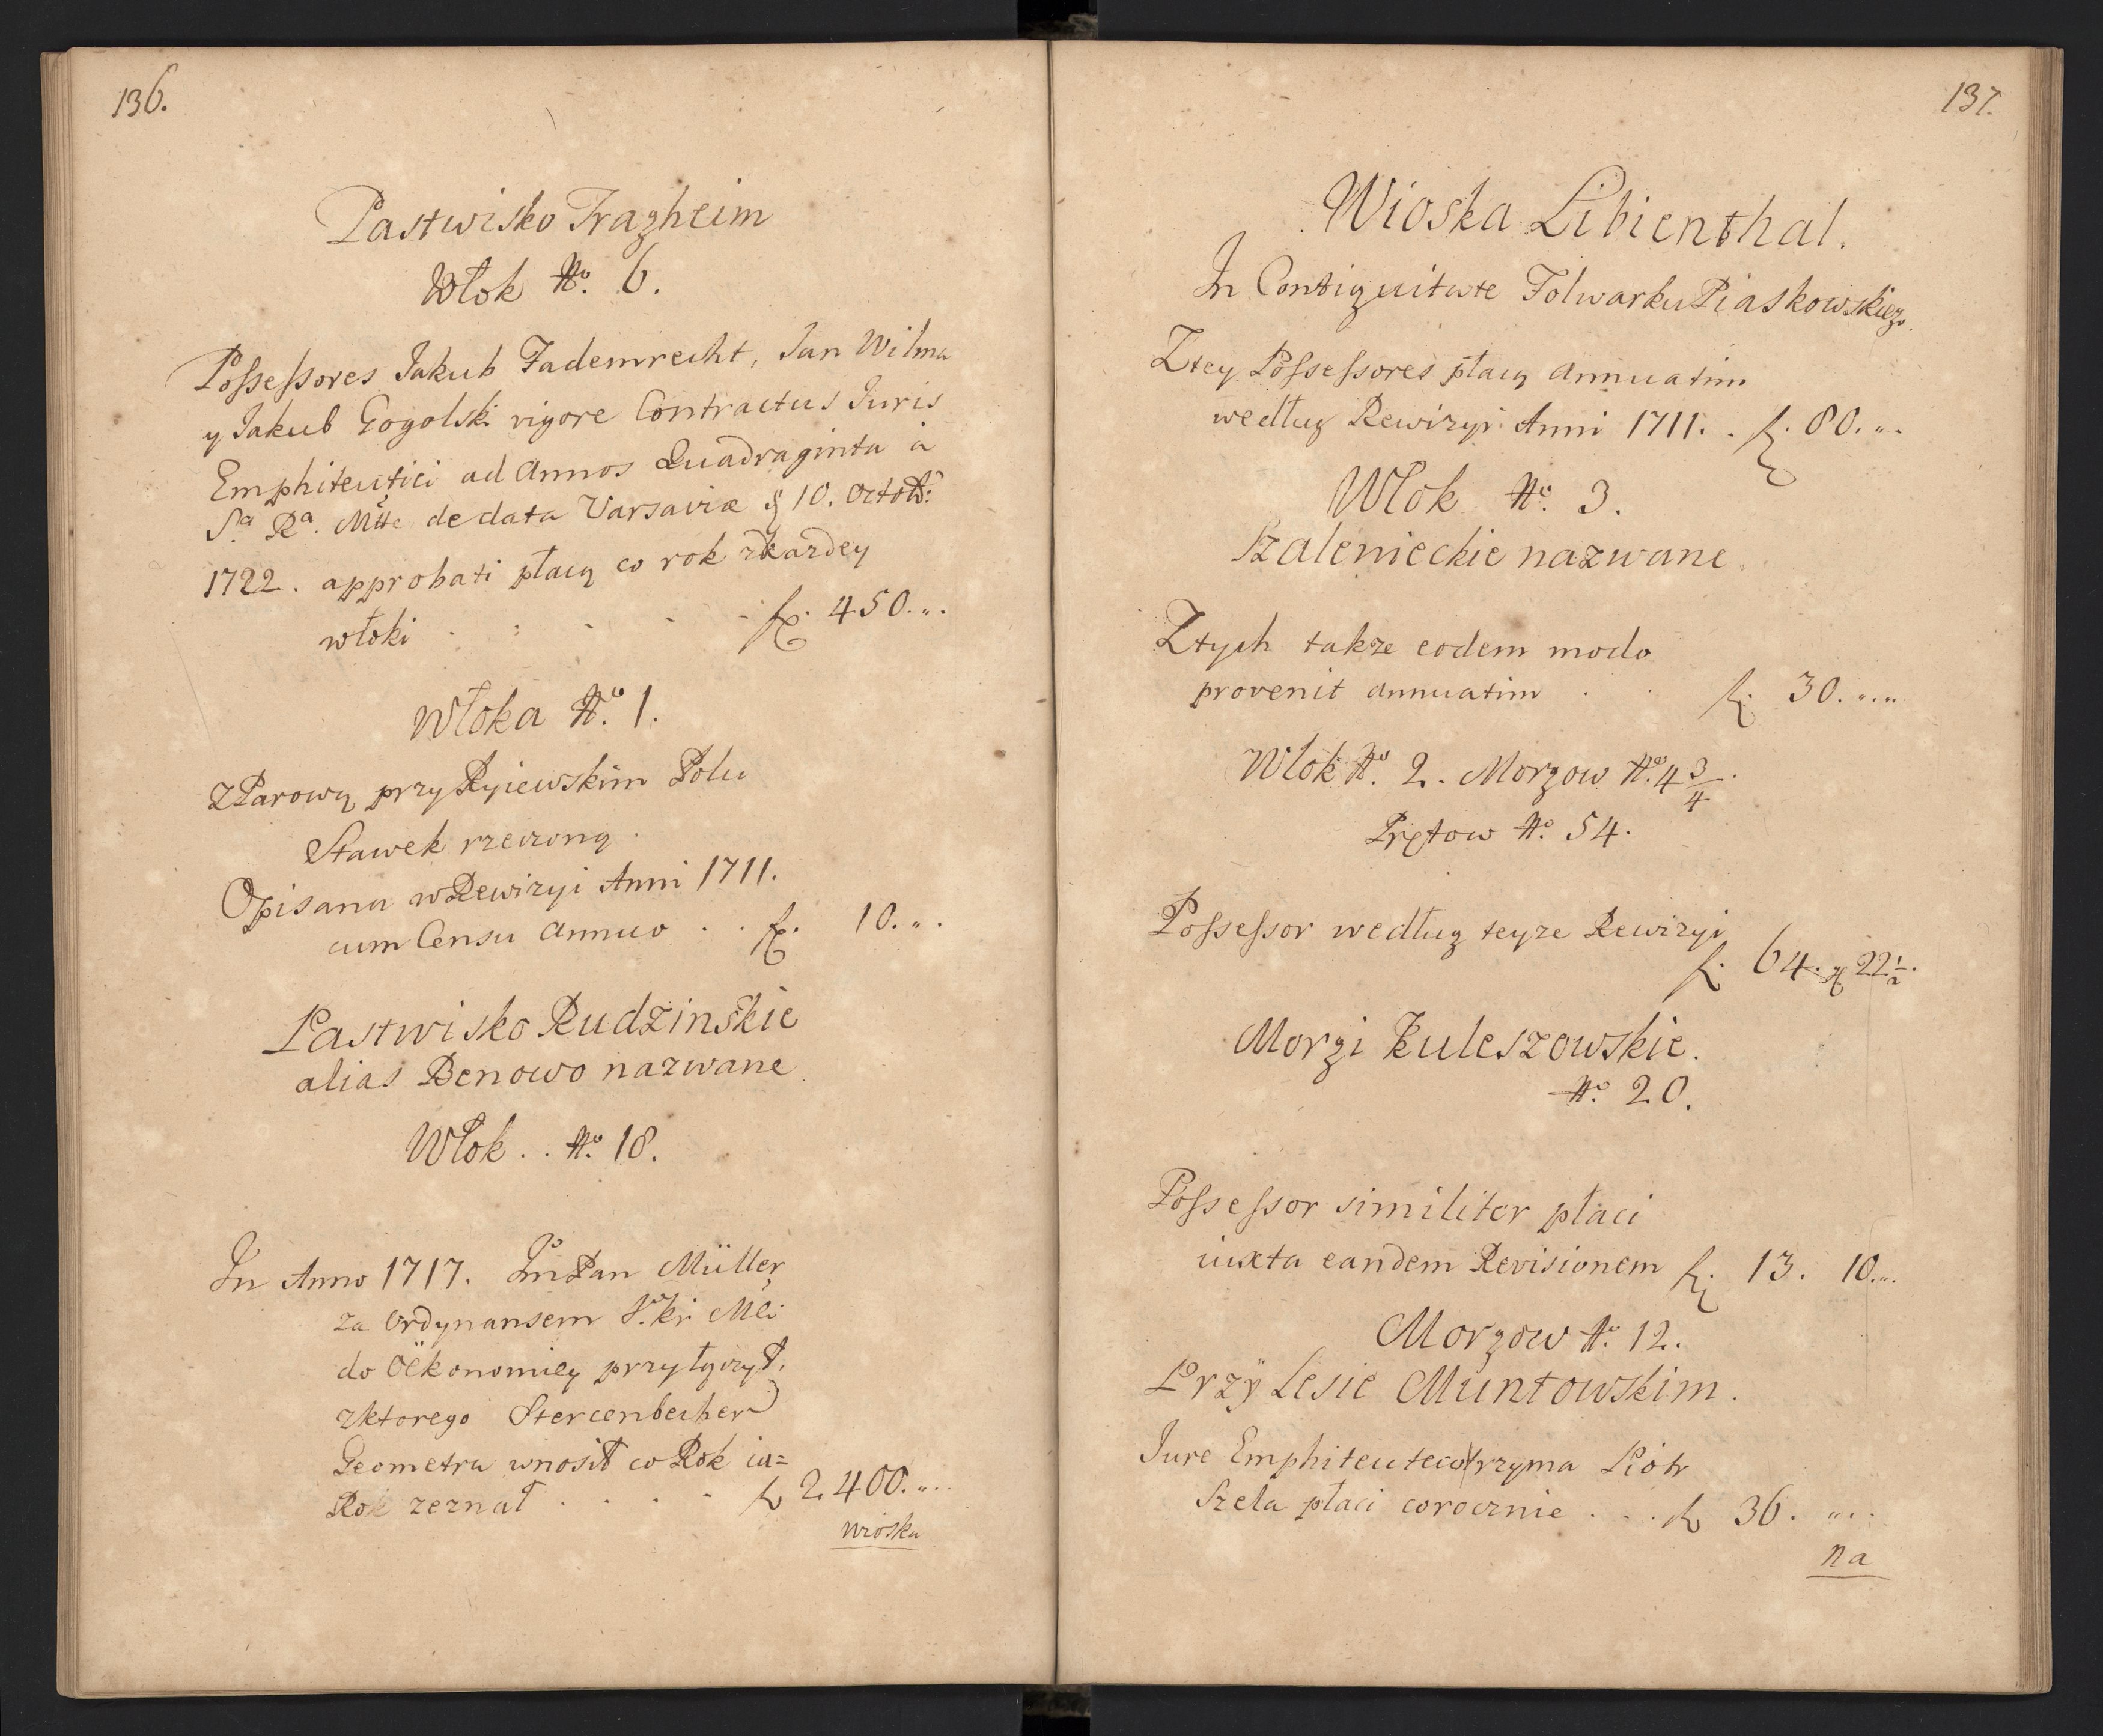 136.
Pastwisko Tragheim
Włok No. 6.
Possessores Jakub Fademrecht, Jan Wilma
y Jakub Gogolski vigore Contractus Juris
Emphiteutici ad Annos Quadraginta à
Sa. Ra. Mtte de data Varsaviæ 10. Octob:
1722. approbati płacą co rok zkazdey
włoki . . . . . f. 450.
Włoka No. 1.
ZParową przy Ryiewskim Polu
Stawek rzeczoną.
Opisana w Rewizyi Anni 1711.
cum Censu Annuo . . f. 10.
Pastwisko Rudzinskie
alias Benowo nazwane
Włok . . No. 18.
In Anno 1717. Pan Müller
za Ordynansem Kr Mci
do Oekonomiey przyłączył,
zktorego Stercenbecher
Geometra wnosił co Rok ia=
Rok zeznał . . . . f 2400.
wioska
137.
Wioska Libienthal.
In Contiguitate Folwarku Piaskowskiego.
Ztey Possessores płacą Annuatim
według Rewizyi Anni 1711. . f. 80.
Włok No. 3.
Szalenieckie nazwane
Ztych takze eodem modo
provenit annuatim . . f. 30.
Włok No. 2. Morgow No. 4 3/4.
Prętow No. 54.
Possessor według teyze Rewizyi
f. 64. g 22 1/2.
Morgi Kuleszowskie.
No. 20.
Possessor similiter płaci
iuxta eandem Revisionem f. 13. 10.
Morgow No. 12.
Przÿ Lesie Muntowskim.
Jure Emphiteuteco trzyma Piotr
Szela płaci corocznie . . . f 36.
na